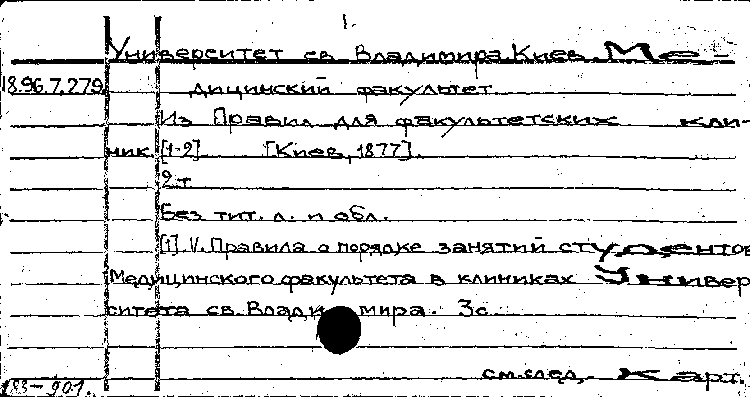 1.
Университет св. Владимира. Киев. Ме-
18.96.7.279
дицинский факультет.
Из Правил для факультетских кли-
ник. [1-2] [Киев, 1877].
2 т.
Без тит. л. и обл.
[1] V. Правила о порядке занятий студентов
Медицинского факультета в клиниках Универ
ситета св. Владимира. 3 с.
см. след. карт.
183-901.